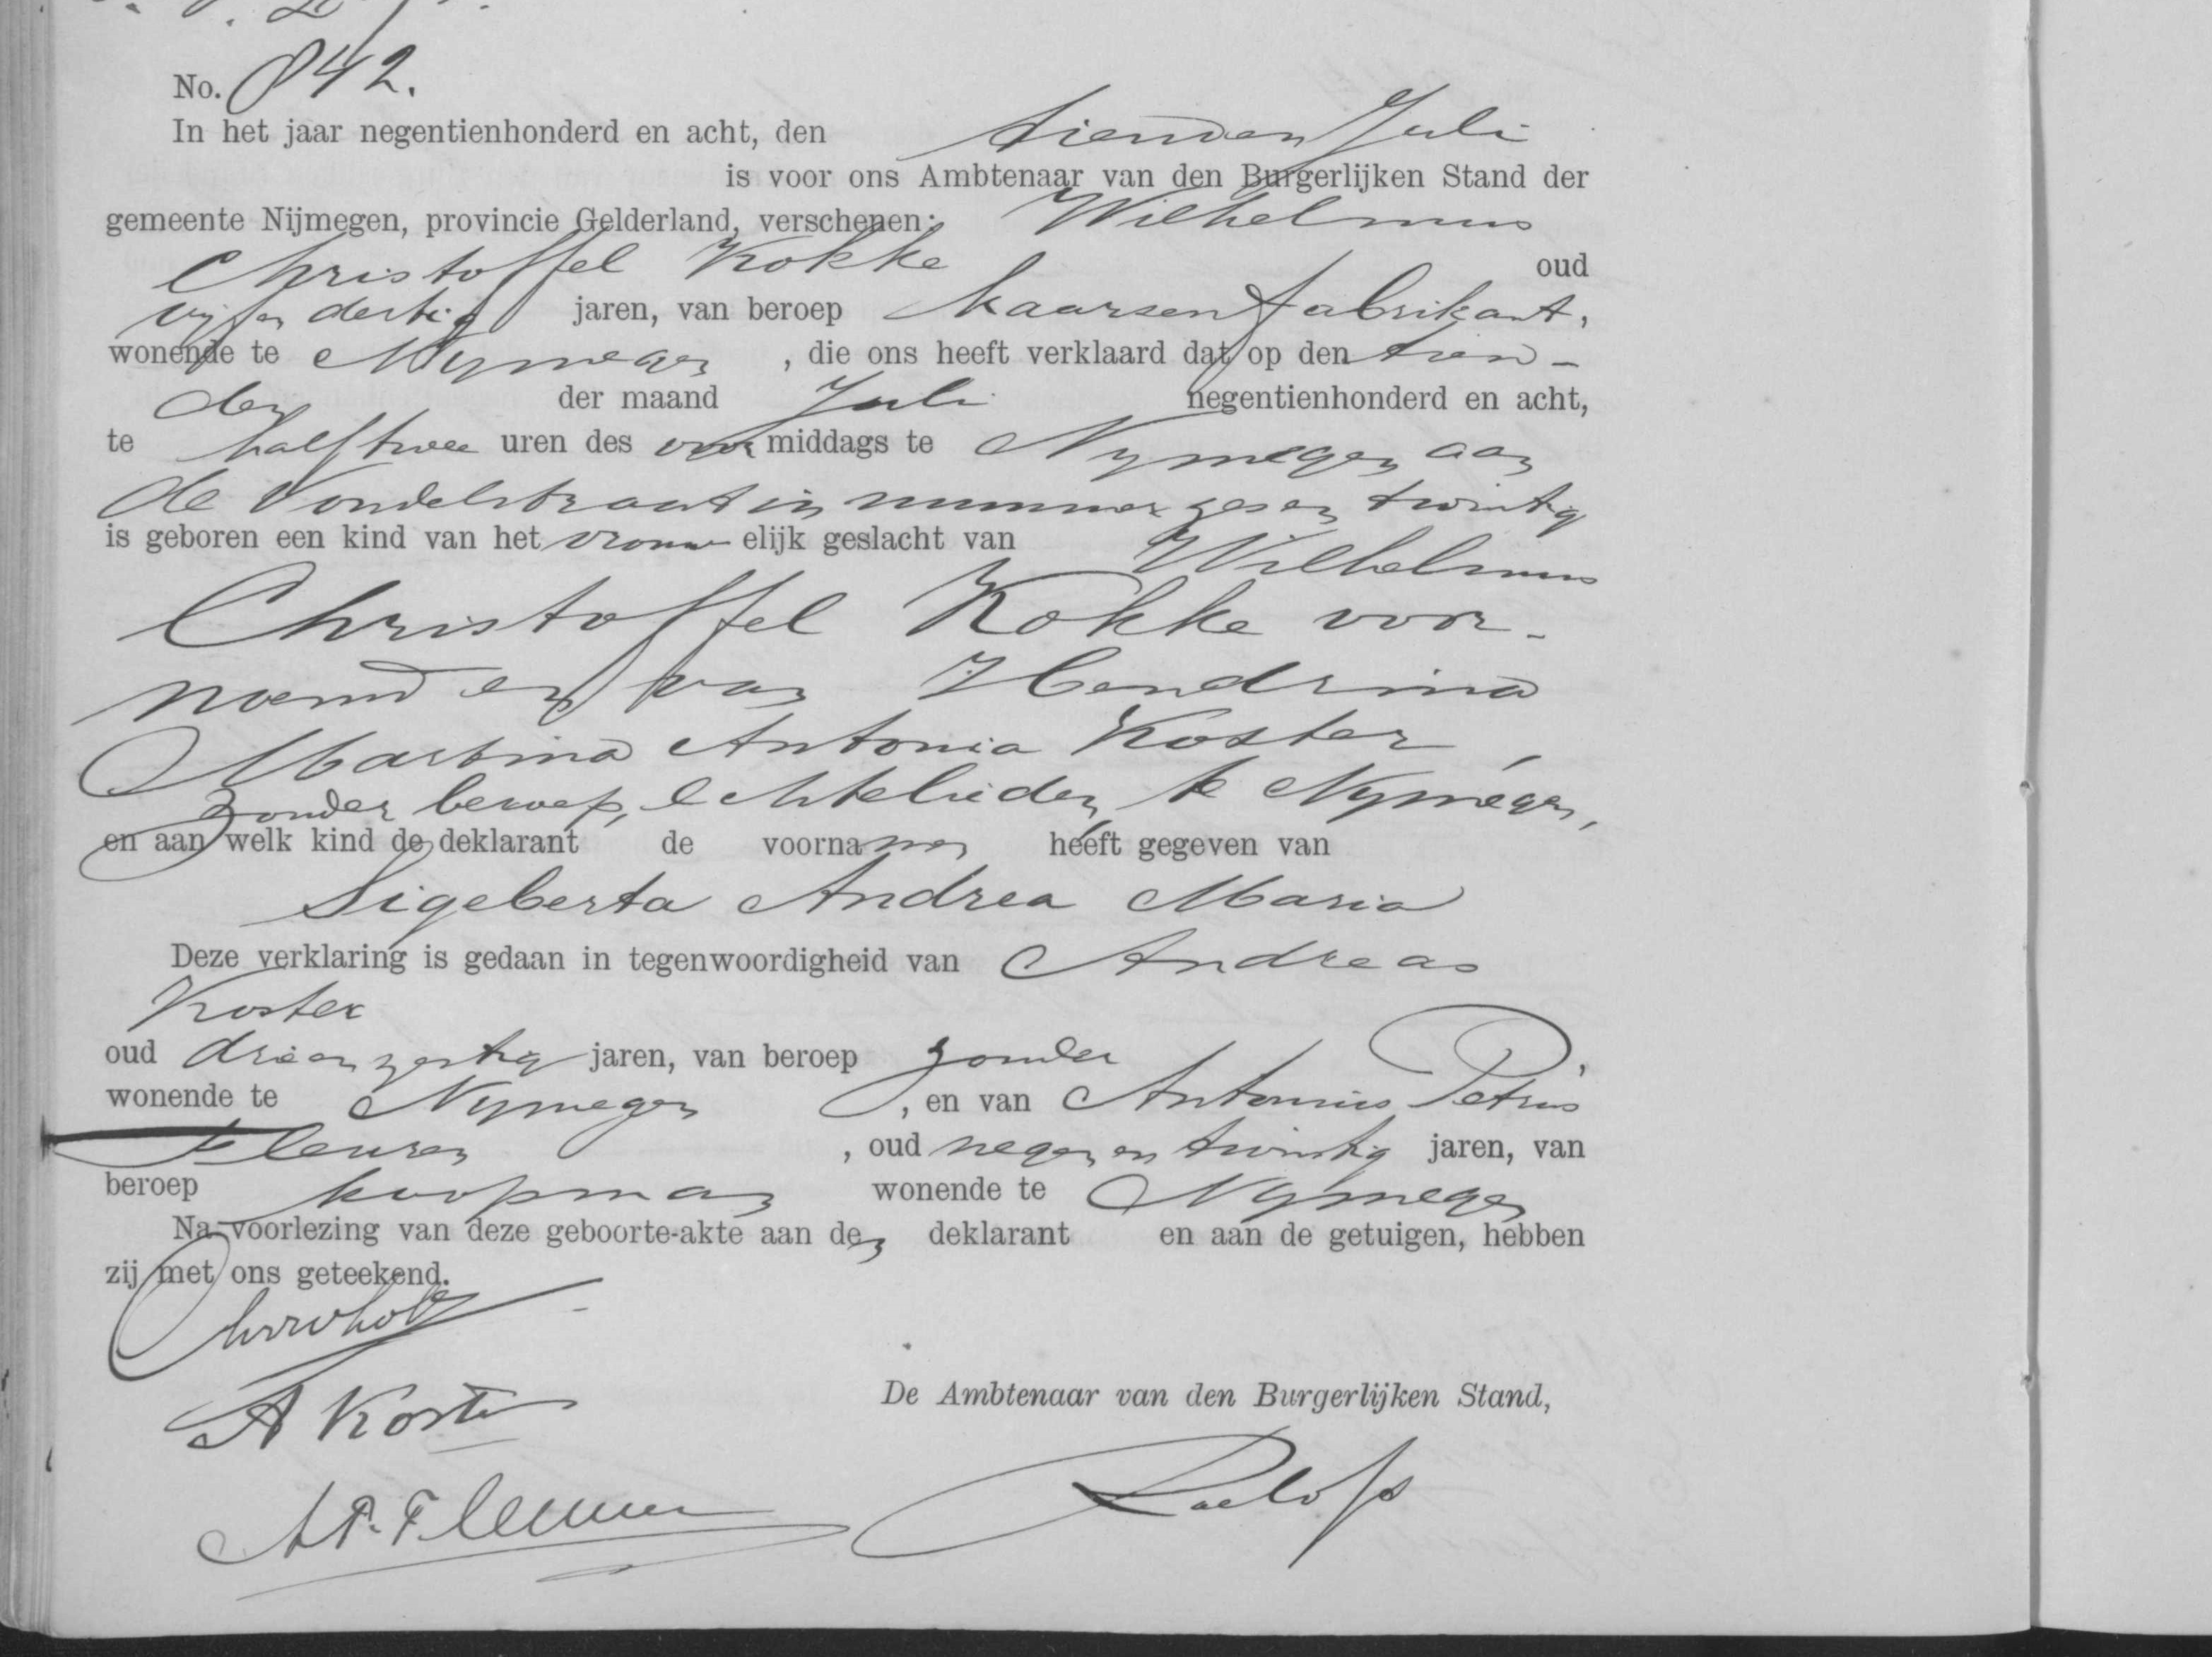 No. 842.
In het jaar negentienhonderd en acht, den tienden Juli
is voor ons Ambtenaar van den Burgerlijken Stand der
gemeente Nijmegen, provincie Gelderland, verschenen: Wilhelmus
Christoffel Kokke oud
vijf en dertig jaren, van beroep kaarsenfabrikant,
wonende te Nymegen, die ons heeft verklaard dat op den tien-
den der maand Juli negentienhonderd en acht,
te half twee uren des voormiddags te Nymegen aan
de Vondelstraat in nummer zes en twintig
is geboren een kind van het vrouwelijk geslacht van Wilhelmus
Christoffel Kokke voor-
noemd en van Hendrina
Martina Antonia Koster,
zonder beroep, echtelieden, te Nymegen,
en aan welk kind de deklarant de voornamen heeft gegeven van
Sigeberta Andrea Maria
Deze verklaring is gedaan in tegenwoordigheid van Andreas
Koster
oud drie en zestig jaren, van beroep zonder,
wonende te Nymegen, en van Antonius Petrus
Fleuren, oud negen en twintig jaren, van
beroep koopman wonende te Nymegen
Na voorlezing van deze geboorte-akte aan den deklarant en aan de getuigen, hebben
zij met ons geteekend.
A Koster
De Ambtenaar van den Burgerlijken Stand,
A.P. Fleuren